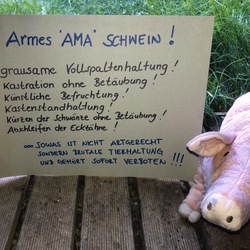 Armes 'AMA' SCHWEIN !
grausame Vollspaltenhaltung !
Kastration ohne Betäubung !
Künstliche Befruchtung !
Kastenstandhaltung !
Kürzen der Schwänze ohne Betäubung !
Abschleifen der Eckzähne !
... SOWAS IST NICHT ARTGERECHT
SONDERN BRUTALE TIERHALTUNG
UND GEHÖRT SOFORT VERBOTEN !!!